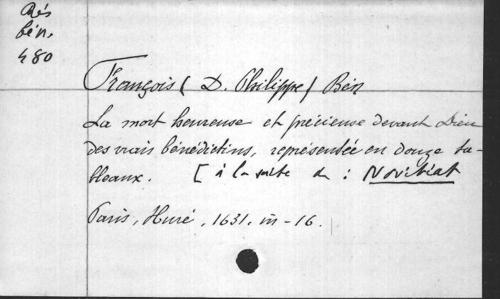 Rés
bén.
480
François ( D. Philippe) Bén
La mort heureuse et précieuse devant Dieu
des vrais bénédictins, représentée en douze ta-
bleaux. [ à la suite de : Novitiat
Paris, Huré, 1631. in-16.